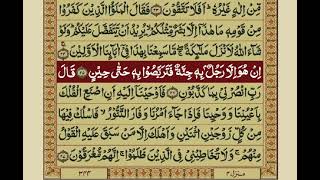 مِّنْ اِلٰهٍ غَیْرُهٗ ؕ اَفَلَا تَتَّقُوْنَ ﴿۲۳﴾ فَقَالَ الْمَلَؤُا الَّذِیْنَ كَفَرُوْا
مِنْ قَوْمِهٖ مَا هٰذَاۤ اِلَّا بَشَرٌ مِّثْلُكُمْ ۙ یُرِیْدُ اَنْ یَّتَفَضَّلَ عَلَیْكُمْ ؕ وَلَوْ
شَآءَ اللّٰهُ لَاَنْزَلَ مَلٰٓئِكَةً ۖۚ مَّا سَمِعْنَا بِهٰذَا فِیْۤ اٰبَآئِنَا الْاَوَّلِیْنَ ﴿۲۴﴾
اِنْ هُوَ اِلَّا رَجُلٌۢ بِهٖ جِنَّةٌ فَتَرَبَّصُوْا بِهٖ حَتّٰی حِیْنٍ ﴿۲۵﴾ قَالَ
رَبِّ انْصُرْنِیْ بِمَا كَذَّبُوْنِ ﴿۲۶﴾ فَاَوْحَیْنَاۤ اِلَیْهِ اَنِ اصْنَعِ الْفُلْكَ
بِاَعْیُنِنَا وَوَحْیِنَا فَاِذَا جَآءَ اَمْرُنَا وَفَارَ التَّنُّوْرُ ۙ فَاسْلُكْ فِیْهَا
مِنْ كُلٍّ زَوْجَیْنِ اثْنَیْنِ وَاَهْلَكَ اِلَّا مَنْ سَبَقَ عَلَیْهِ الْقَوْلُ
مِنْهُمْ ۚ وَلَا تُخَاطِبْنِیْ فِی الَّذِیْنَ ظَلَمُوْا ۚ اِنَّهُمْ مُّغْرَقُوْنَ ﴿۲۷﴾
منزل ۴
۳۴۳